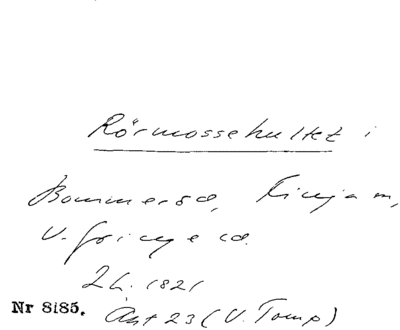 Rörmossehultet i
Bommeröd, Finja m,
V. Göinge hd.
2 h. 1821
Nr 8185. Akt 23 (V. Torup)